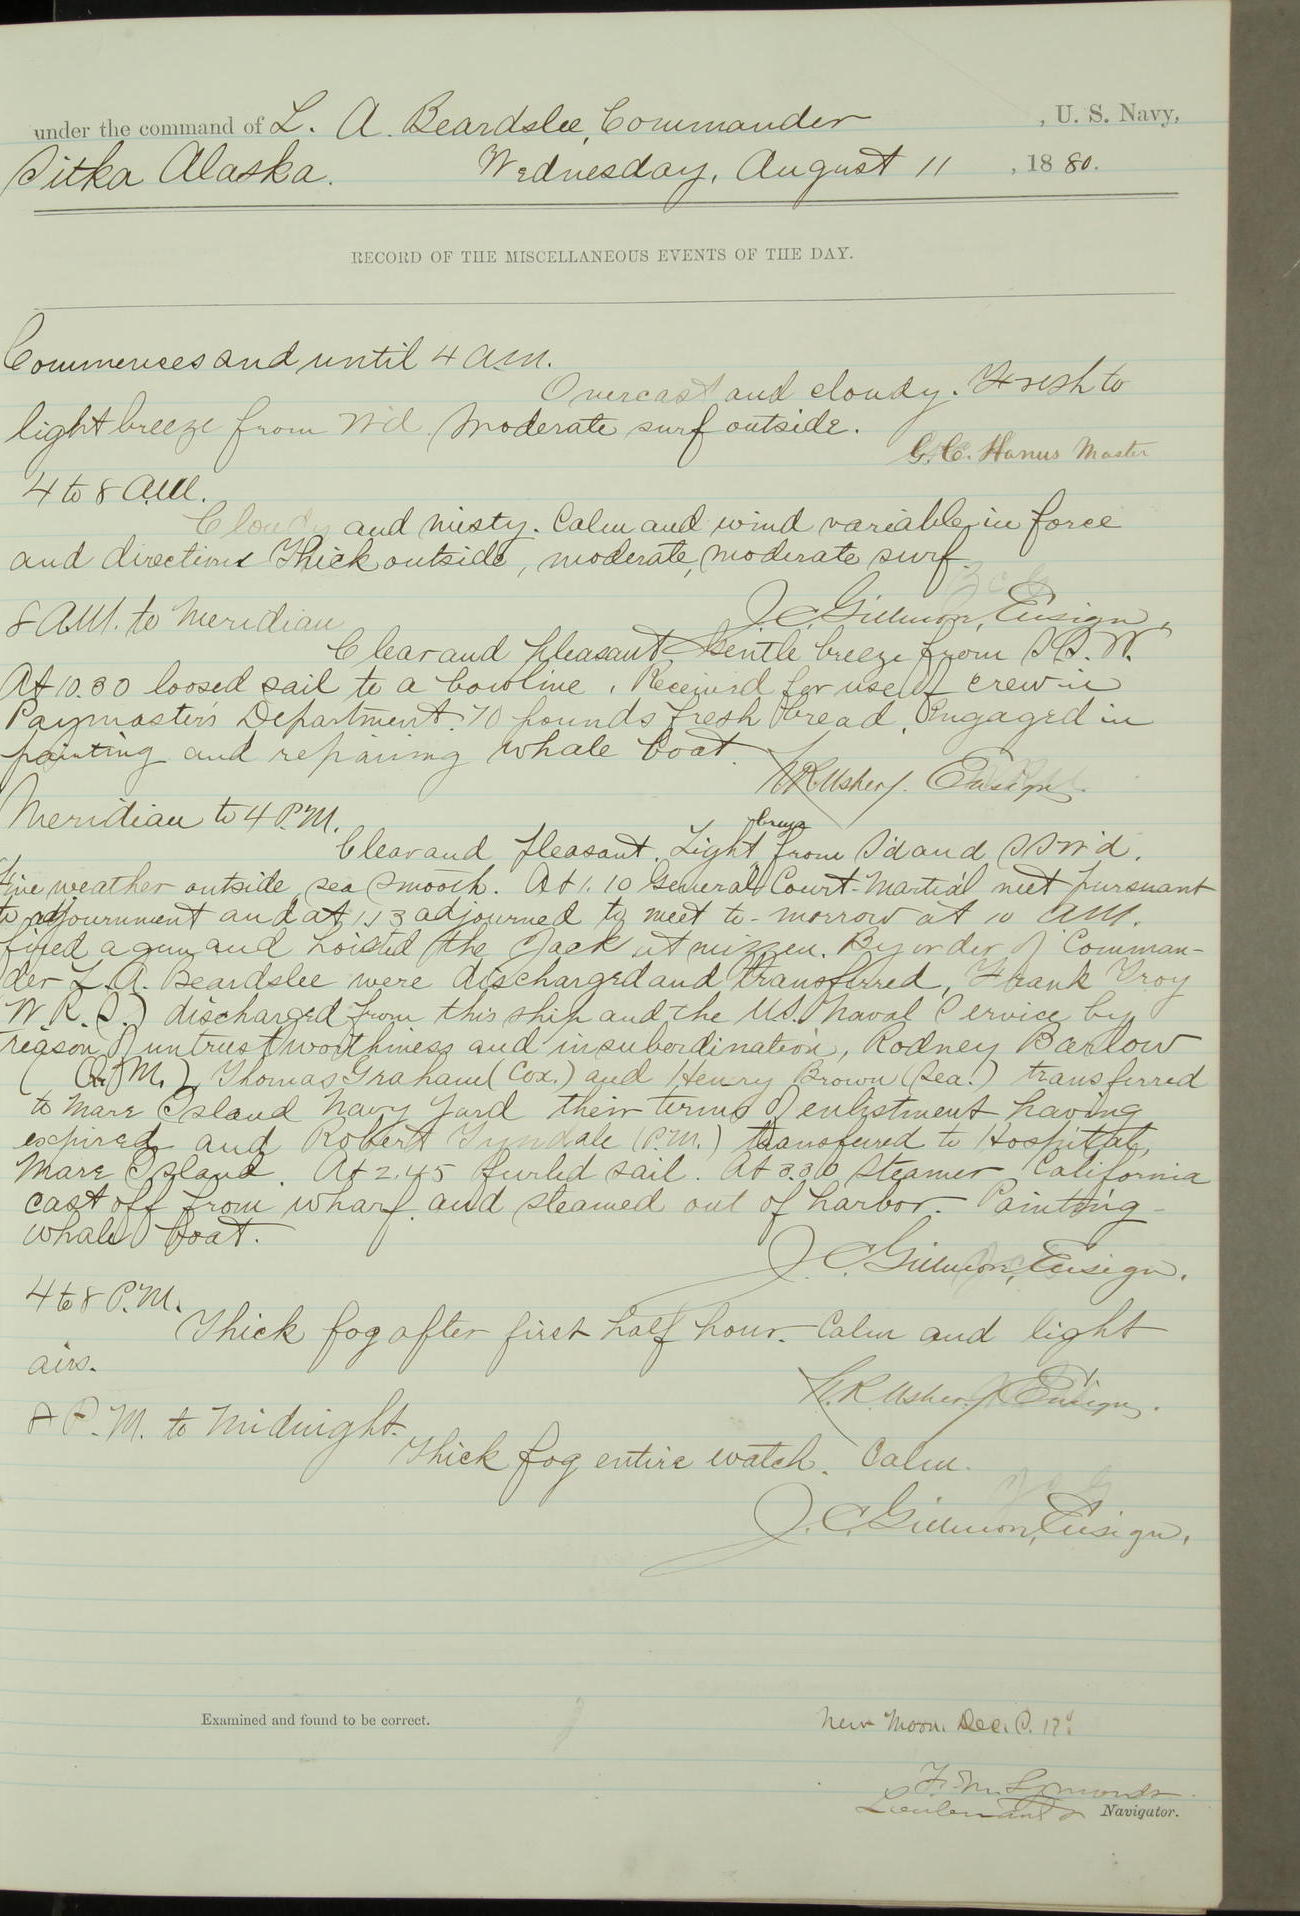 under the command of L. A. Beardslee, Commander , U. S. Navy,
Sitka Alaska. Wednesday, August 11 , 1880.
RECORD OF THE MISCELLANEOUS EVENTS OF THE DAY.
Commences and until 4 A.M.
Overcast and cloudy. Fresh to
light breeze from W'd. Moderate surf outside.
G. C. Hanus Master
4 to 8 A.M.
Cloudy and misty. Calm and wind variable in force
and direction Thick outside, moderate, moderate surf.
J. C. Gillmor, Ensign.
8 A.M. to Meridian
Clear and pleasant. Gentle breeze from S.S.W.
At 10.30 loosed sail to a bowline. Received for use of crew in
Paymaster's Department 70 pounds fresh bread. Engaged in
painting and repairing whale boat.
N.R. Usher, Ensign.
Meridian to 4 P.M.
Clear and pleasant. Light breeze from S'd and SSW'd.
Fine weather outside, sea smooth. At 1.10 General Court-Martial met pursuant
to adjournment and at 1.13 adjourned to meet to-morrow at 10 A.M.
fired a gun and hoisted the Jack at mizzen. By order of Comman-
der L. A. Beardslee were discharged and transferred, Frank Troy
W.R.S.) discharged from this ship and the U.S. Naval Service by
reason of untrustworthiness and insubordination, Rodney Barlow
(Q.M.), Thomas Graham (Cox.) and Henry Brown (Sea.) transferred
to Mare Island Navy Yard their terms of enlistment having
expired and Robert Tyndale (P.M.) transferred to Hospital,
Mare Island. At 2.45 furled sail. At 3.30 Steamer California
cast off from wharf and steamed out of harbor. Painting
whale boat.
J. C. Gillmor, Ensign.
4 to 8 P.M.
Thick fog after first half hour. Calm and light
airs.
N.R. Usher, Ensign.
8 P.M. to Midnight.
Thick fog entire watch. Calm.
J. C. Gillmor, Ensign.
Examined and found to be correct.
New Moon. Dec.
F. M. Symonds
Lieutenant & Navigator.